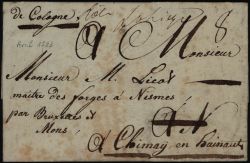 de Cologne
8
a Monsieur
Monsieur M. Licot
maitre des forges à Nismes
par Bruxelles et
Mons
à Chimay en Hainaut